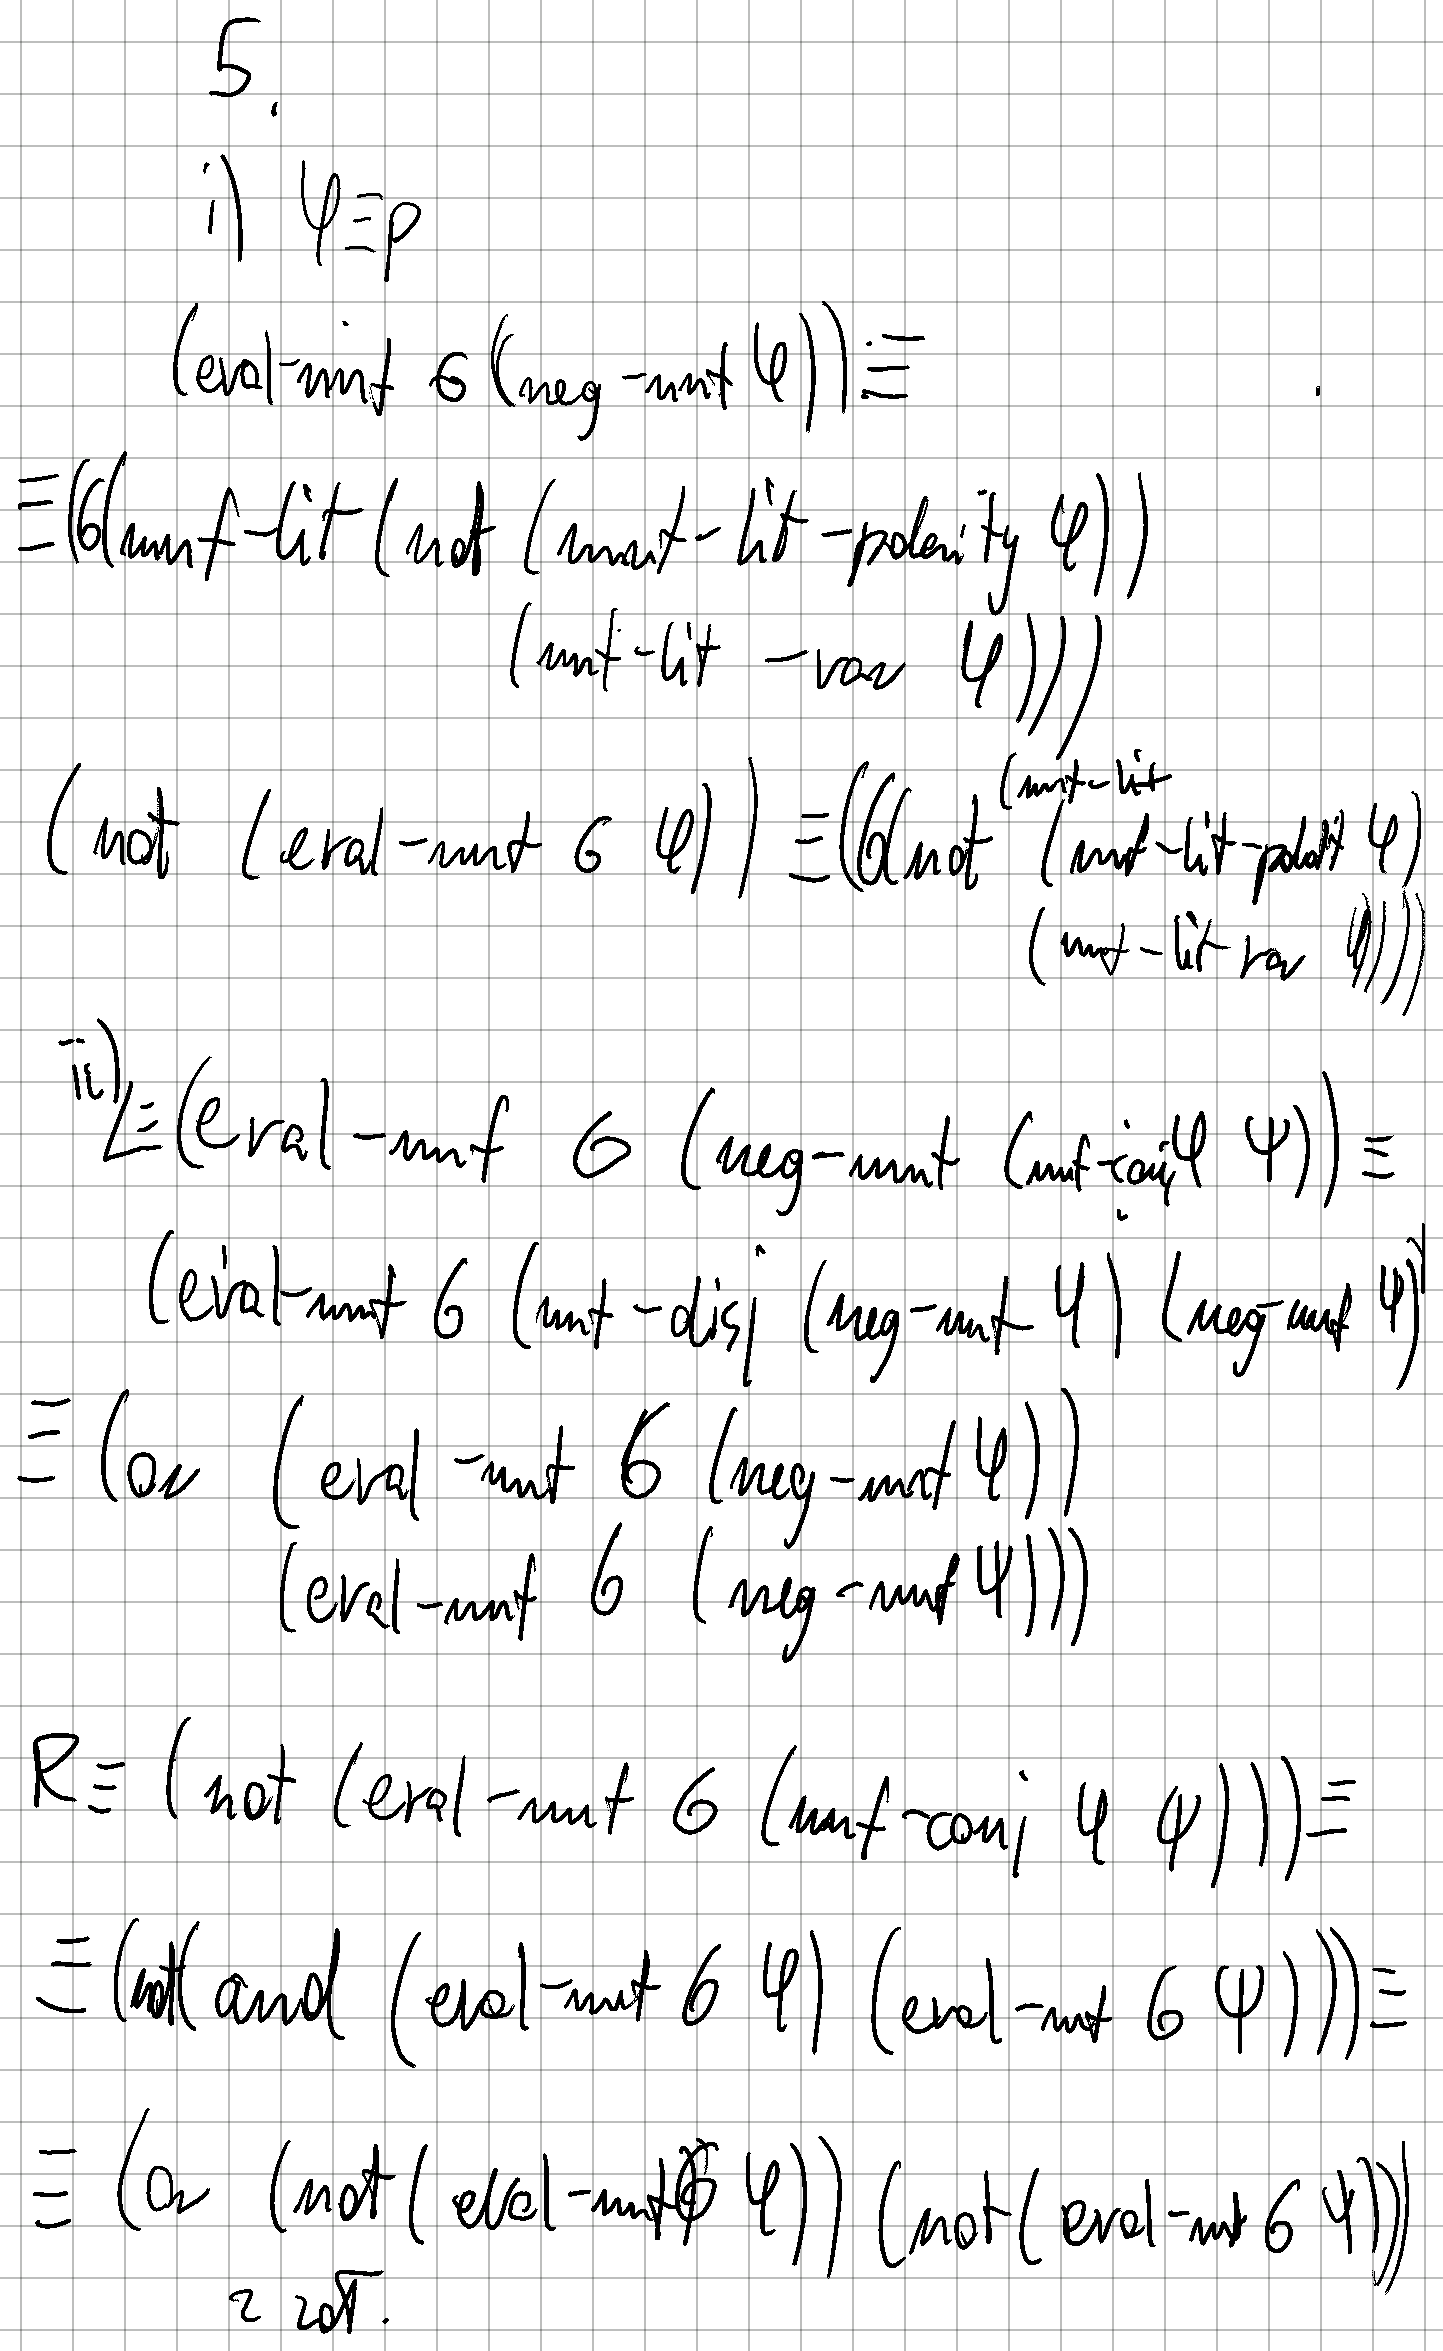 5.
i) φ≡p
(eval-nnf σ (neg-nnf φ)) ≡
≡ (σ(nnf-lit (not (nnf-lit-polarity φ))
(nnf-lit -var φ)))
(not (eval-nnf σ φ)) ≡ ((σ(not (nnf-lit
(nnf-lit-polarity φ)
(nnf-lit-var φ))))
ii) L≡(eval-nnf σ (neg-nnf (nnf-conj φ ψ)) ≡
(eval-nnf σ (nnf-disj (neg-nnf φ) (neg-nnf ψ)
≡ (or (eval-nnf σ (neg-nnf φ))
(eval-nnf σ (neg-nnf ψ)))
R≡ (not (eval-nnf σ (nnf-conj φ ψ))) ≡
≡ (not(and (eval-nnf σ φ) (eval-nnf σ ψ))) ≡
≡ (or (not(eval-nnf σ φ)) (not(eval-nnf σ ψ)))
z zał.